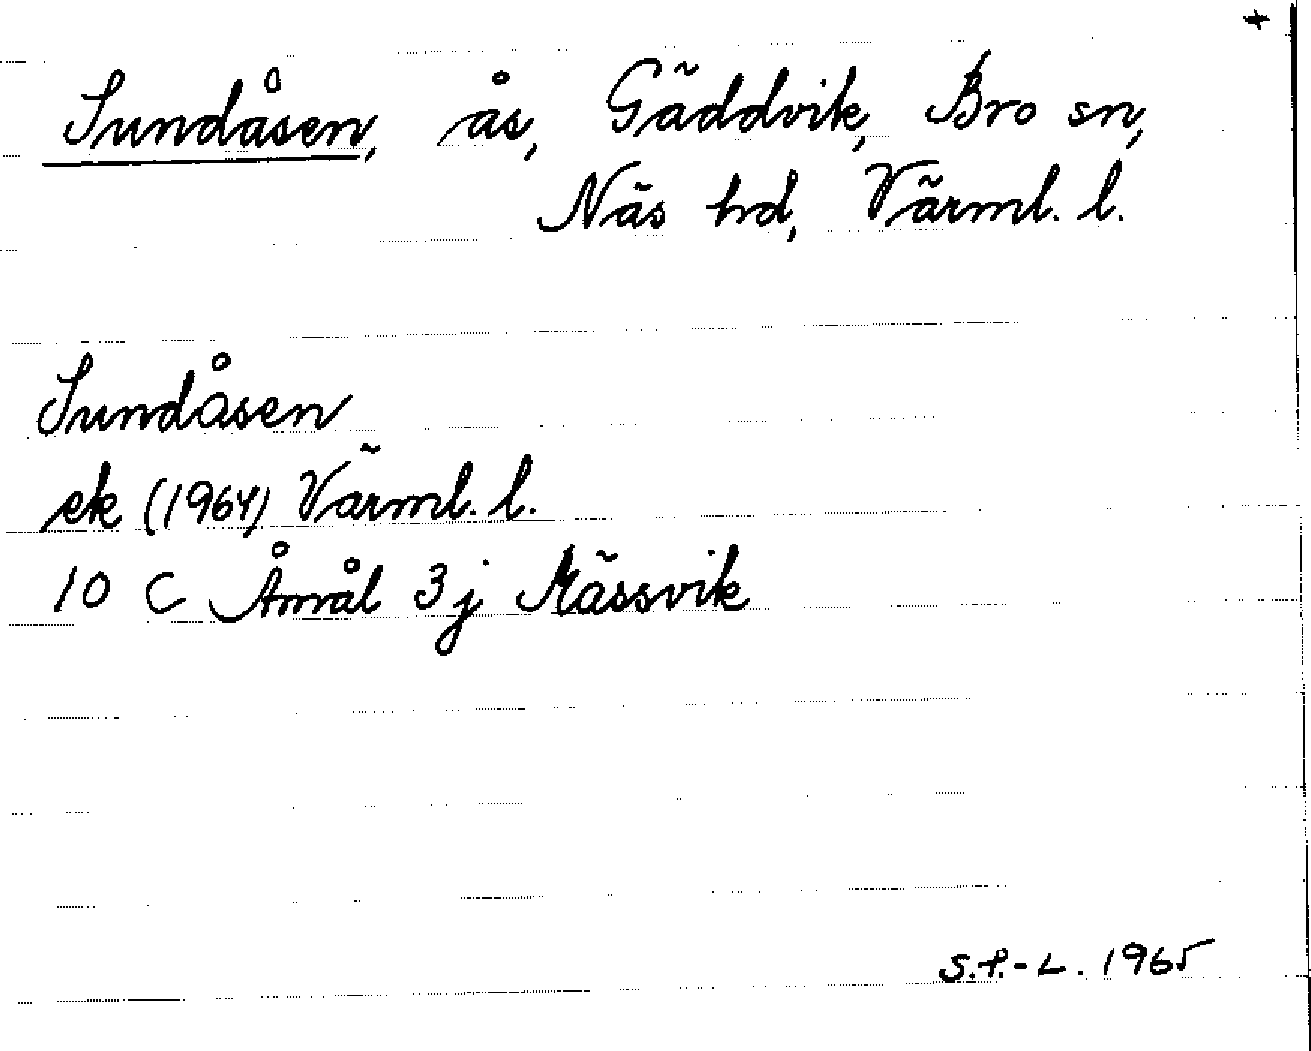 +
Sundåsen, ås, Gäddvik, Bro sn,
Näs hd, Värml. l.
Sundåsen
ek (1964) Värml. l.
10 C Åmål 3j Mässvik
S.P.-L. 1965